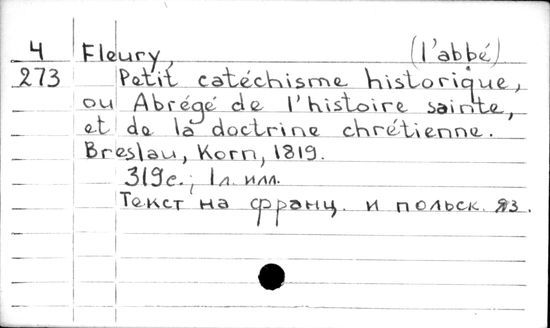 4 Fleury, (l'abbé)
273 Petit catéchisme historique,
ou Abrégé de l'histoire sainte,
et de la doctrine chrétienne.
Breslau, Korn, 1819.
319с.; 1л. илл.
Текст на франц. и польск. яз.